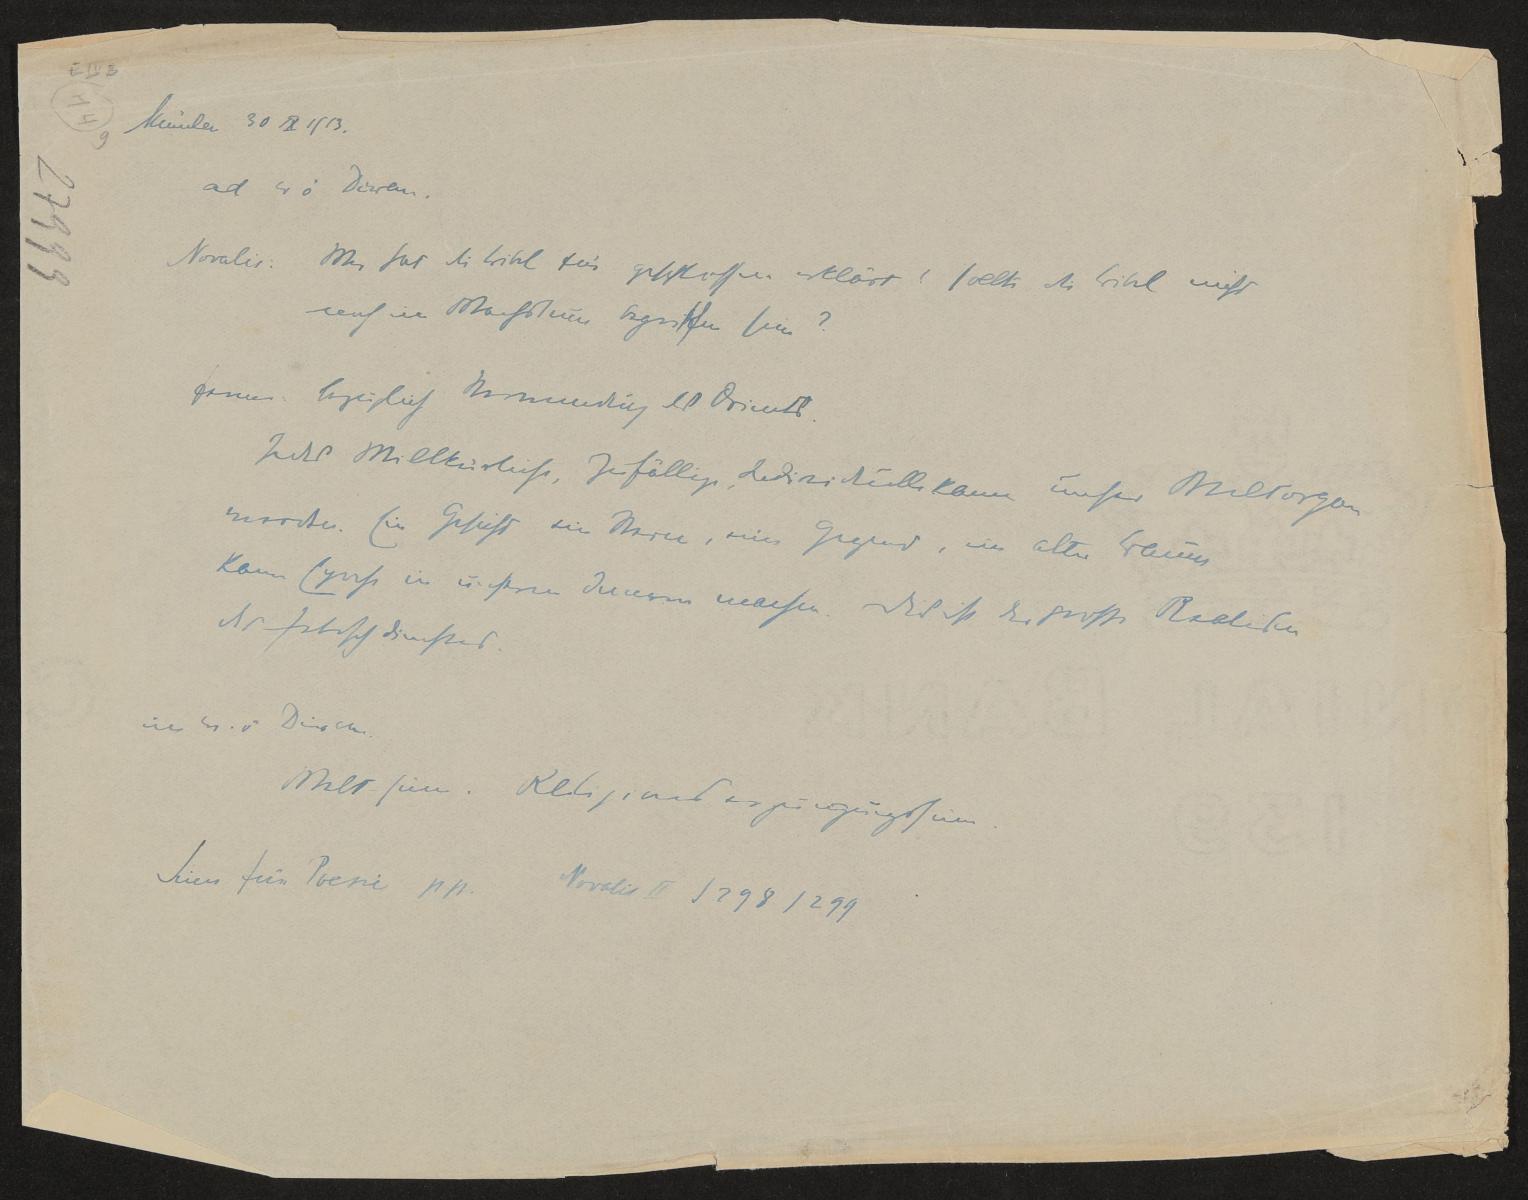 E IV B
44
9
27999
München 30 IX 1913.
ad w ö Diwan.
Novalis: Wer hat die Bibel für geschlossen erklärt? Sollte die Bibel nicht
noch im Wachstum begriffen sein?
ferner: bezüglich Verwendung des Orients.
Jedes Willkürliche, Zufällige, Individuelle kann unser Weltorgan
werden. Ein Gesicht ein Stern, eine Gegend, ein alter Baum
kann Epoche in unserem Inneren machen. Dies ist der grosse Realism
des Fetischdienstes.
im w. ö Diwan.
Welt sinn.
Sinn für Poesie pp. Novalis II /298/299